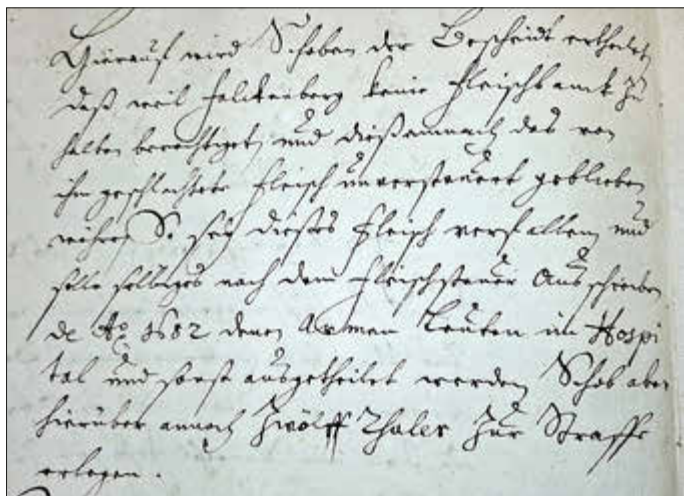 Hierauf wird Schoben der Bescheidt ertheilet,
daß weil Falckenberg keine Fleischbanck zu
halten berechtiget, und dießemnach das von
ihm geschlachtete Fleisch unversteuert geblieben
währe, So sey dieses Fleisch verfallen, und
solle selbiges nach dem Fleischsteuer Ausschreiben
de Ao 1682 denen Armen Leuten im Hospi
tal und sonst ausgetheilet werden, Schob aber
hierüber annoch Zwölff Thaler Zur Straffe
erlegen.